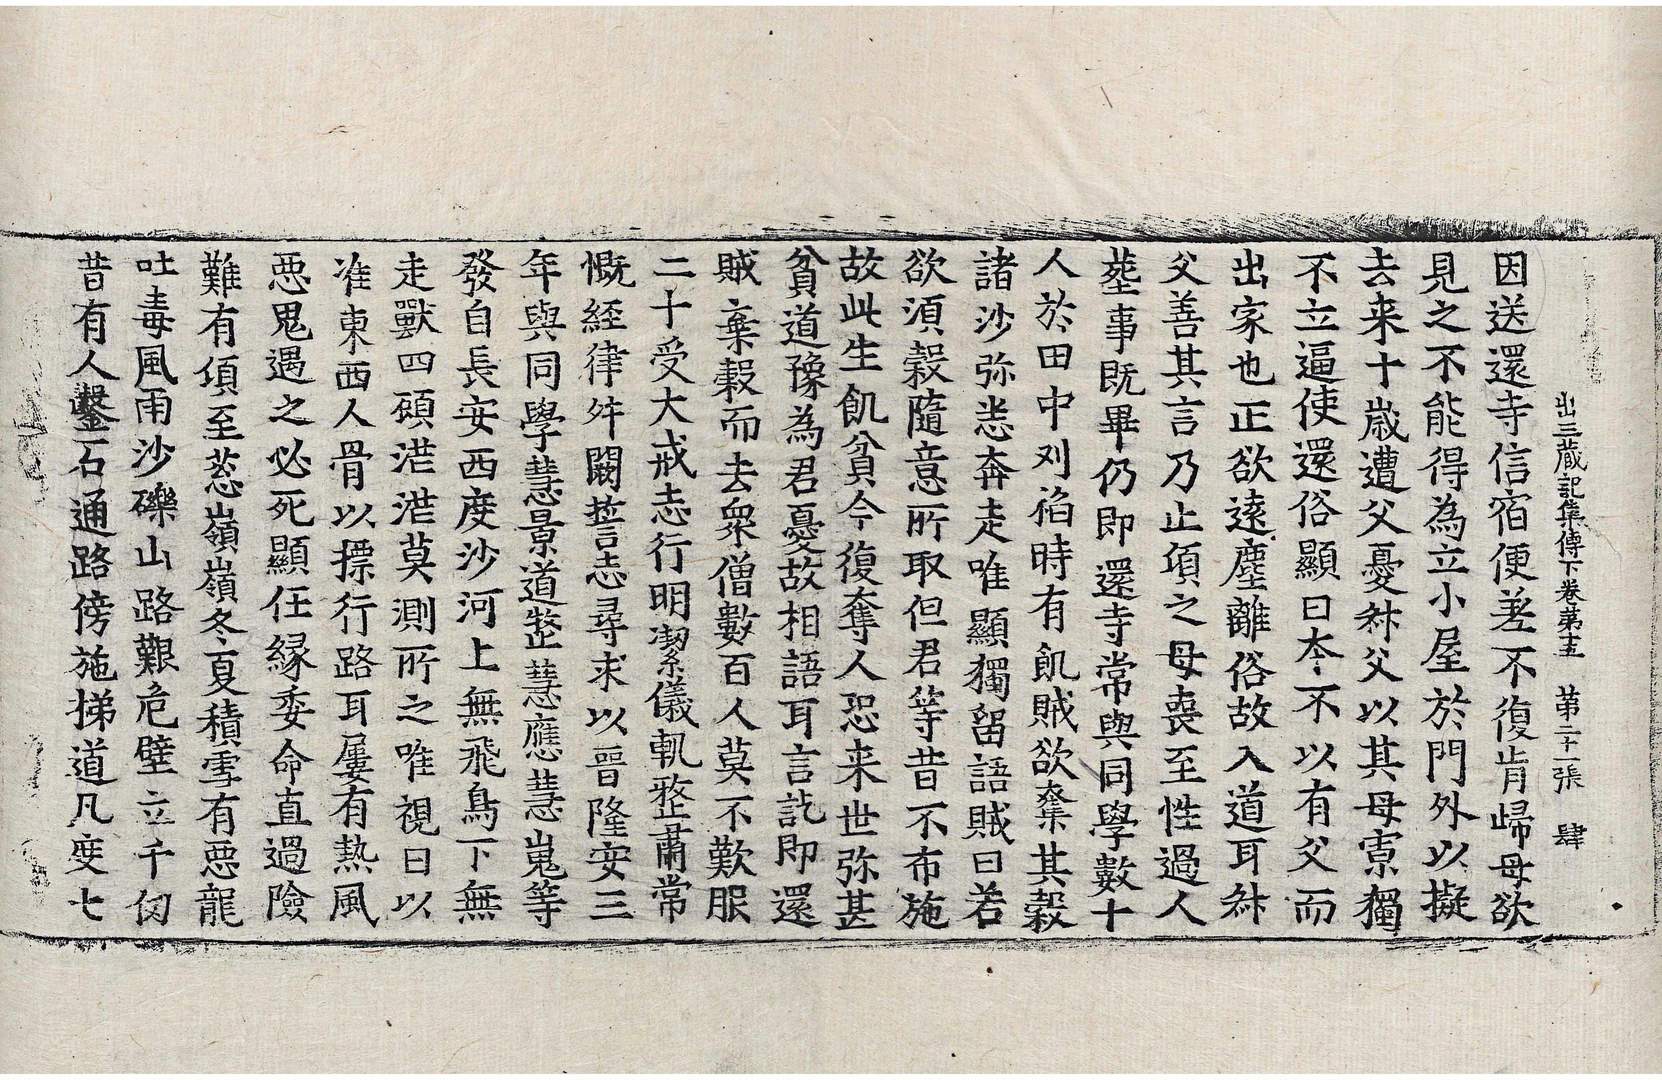 出三藏記集傳下卷第十五　第二十一張　肆
因送還寺信宿便差不復肯歸母欲
見之不能得為立小屋於門外以擬
去来十歲遭父憂𠦑父以其母寡獨
不立逼使還俗顯曰本不以有父而
出家也正欲遠塵離俗故入道耳𠦑
父善其言乃止頃之母喪至性過人
葬事既畢仍即還寺常與同學數十
人於田中刈稻時有飢賊欲奪其穀
諸沙弥悉奔走唯顯獨留語賊曰若
欲湏穀隨意所取但君等昔不布施
故此生飢貧今復奪人恐来世弥甚
貧道豫為君憂故相語耳言訖即還
賊棄穀而去衆僧數百人莫不歎服
二十受大戒志行明潔儀軌整肅常
慨經律舛闕誓志尋求以晉隆安三
年與同學慧景道整慧應慧嵬等
發自長安西度沙河上無飛鳥下無
走獸四顧茫茫莫測所之唯視日以
准東西人骨以摽行路耳屢有熱風
惡鬼遇之必死顯任緣委命直過險
難有頃至葱嶺嶺冬夏積雪有惡龍
吐毒風雨沙礫山路艱危壁立千仞
昔有人鑿石通路傍施梯道凡度七